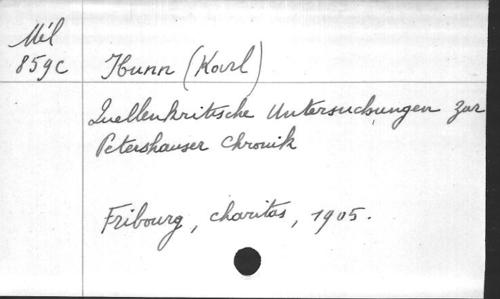 Mél
859c Hunn (Karl)
Quellenkritische Untersuchungen zur
Petershauser Chronik
Fribourg, charitas, 1905.